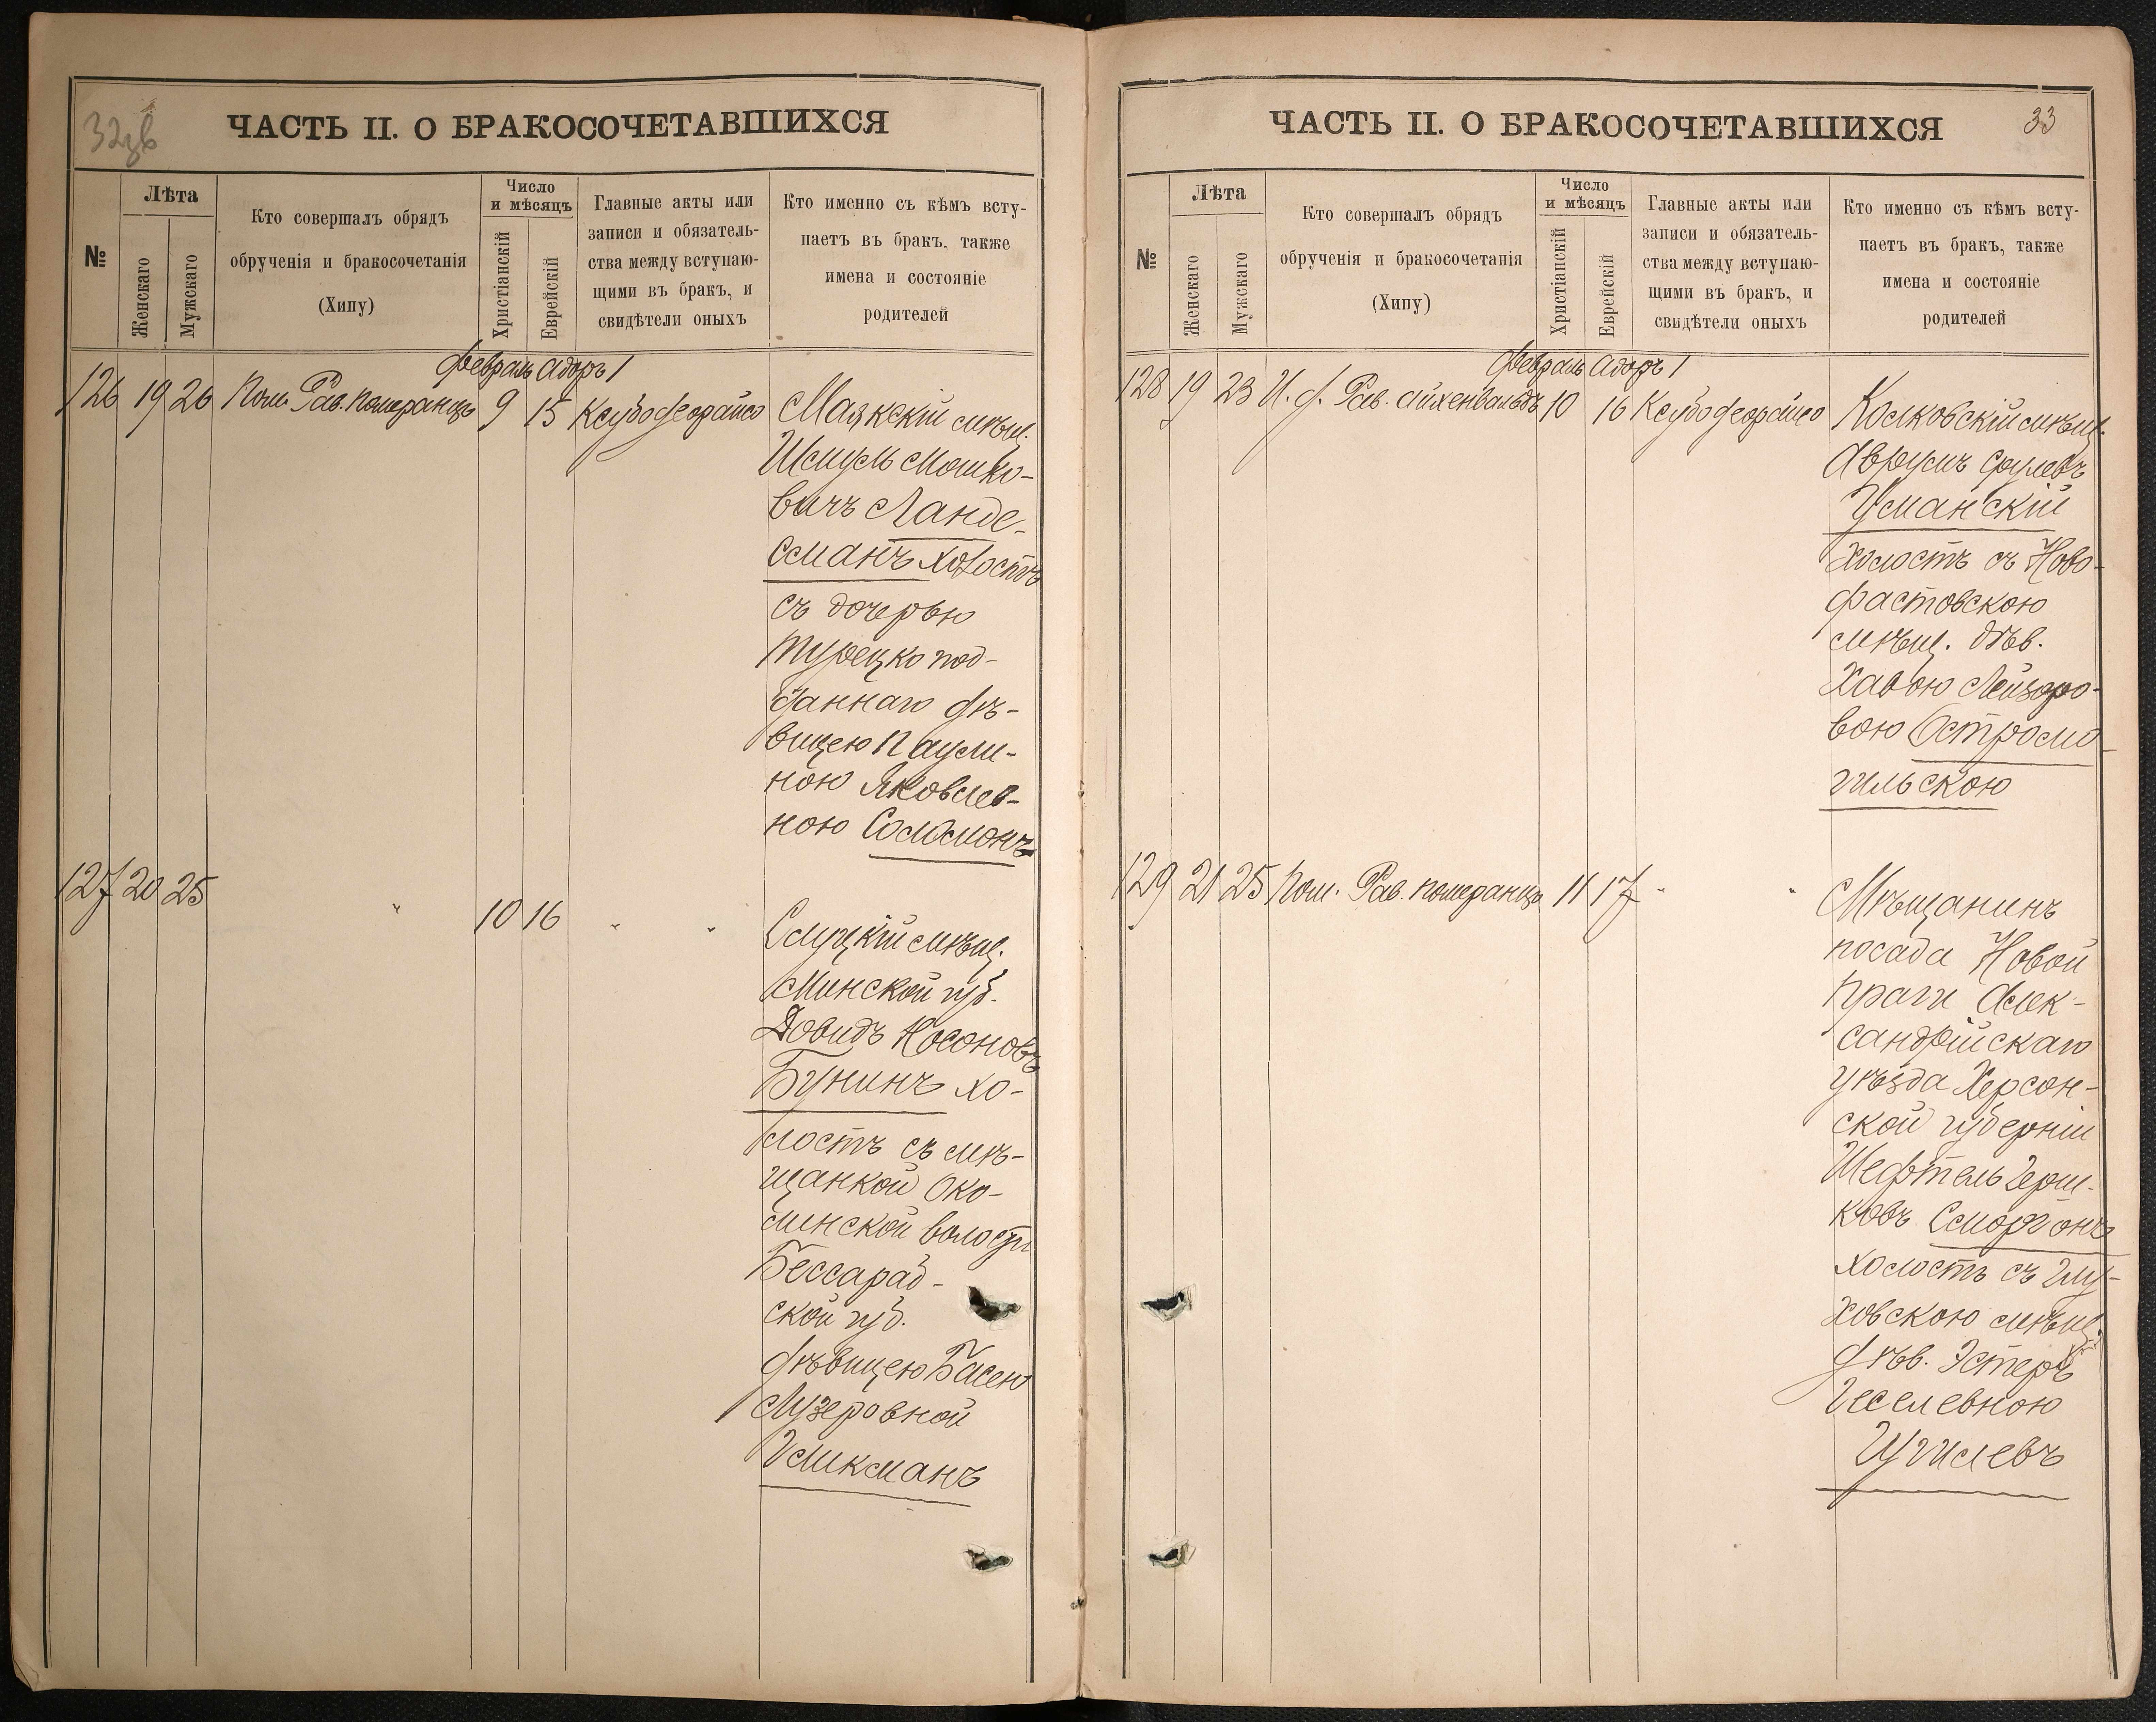 32зв
ЧАСТЬ II. О БРАКОСОЧЕТАВШИХСЯ
№
Лѣта
Женскаго
Мужскаго
Кто совершалъ обрядъ
обрученія и бракосочетанія
(Хипу)
Число
и мѣсяцъ
Христіанскій
Еврейскій
Главные акты или
записи и обязатель-
ства между вступаю-
щими въ бракъ, и
свидѣтели оныхъ
Кто именно съ кѣмъ всту-
паетъ въ бракъ, также
имена и состояніе
родителей
Февраль Адоръ 1
126 19 26 Пом. Рав. Померанцъ 9 15 Ксубо деорайсо
Маякскій мѣщ.
Шмуль Мошко-
вичъ Ланде-
сманъ холостъ
съ дочерью
Турецко под-
даннаго дѣ-
вицею Паули-
ною Яковлев-
ною Соломонъ
127 20 25 " 10 16 " "
Слуцкій мѣщ.
Минской губ.
Довидъ Носоновъ
Бунинъ хо-
лостъ съ мѣ-
щанкой Око-
линской волости
Бессараб-
ской губ.
дѣвицею Басею
Лузеровной
Гликманъ
33
ЧАСТЬ II. О БРАКОСОЧЕТАВШИХСЯ
№
Лѣта
Женскаго
Мужскаго
Кто совершалъ обрядъ
обрученія и бракосочетанія
(Хипу)
Число
и мѣсяцъ
Христіанскій
Еврейскій
Главные акты или
записи и обязатель-
ства между вступаю-
щими въ бракъ, и
свидѣтели оныхъ
Кто именно съ кѣмъ всту-
паетъ въ бракъ, также
имена и состояніе
родителей
Февраль Адоръ 1
128 19 23 И. д. Рав. Айхенвальдъ 10 16 Ксубо деорайсо
Колковскій мѣщ.
Аврумъ Срулевъ
Уманскій
холостъ съ Ново-
фастовскою
мѣщ. дѣв.
Хавою Лейзоро-
вою Остромо-
гильскою
129 21 25 Пом. Рав. Померанцъ 11 17 " "
Мѣщанинъ
посада Новой
Праги Алек-
сандрійскаго
уѣзда Херсон-
ской губерніи
Шефтель Герш-
ковъ Сморгонъ
холостъ съ Глу-
ховскою мѣщ.
дѣв. Эстеръ
Геселевною
Цугилевъ